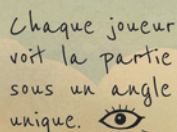 Chaque joueur
voit la partie
sous un angle
unique.